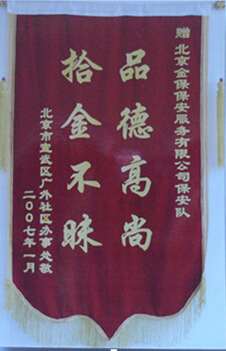 赠北京金保保安服务有限公司保安队
品德高尚
拾金不昧
北京市宣武区广外社区办事处敬
二00七年一月